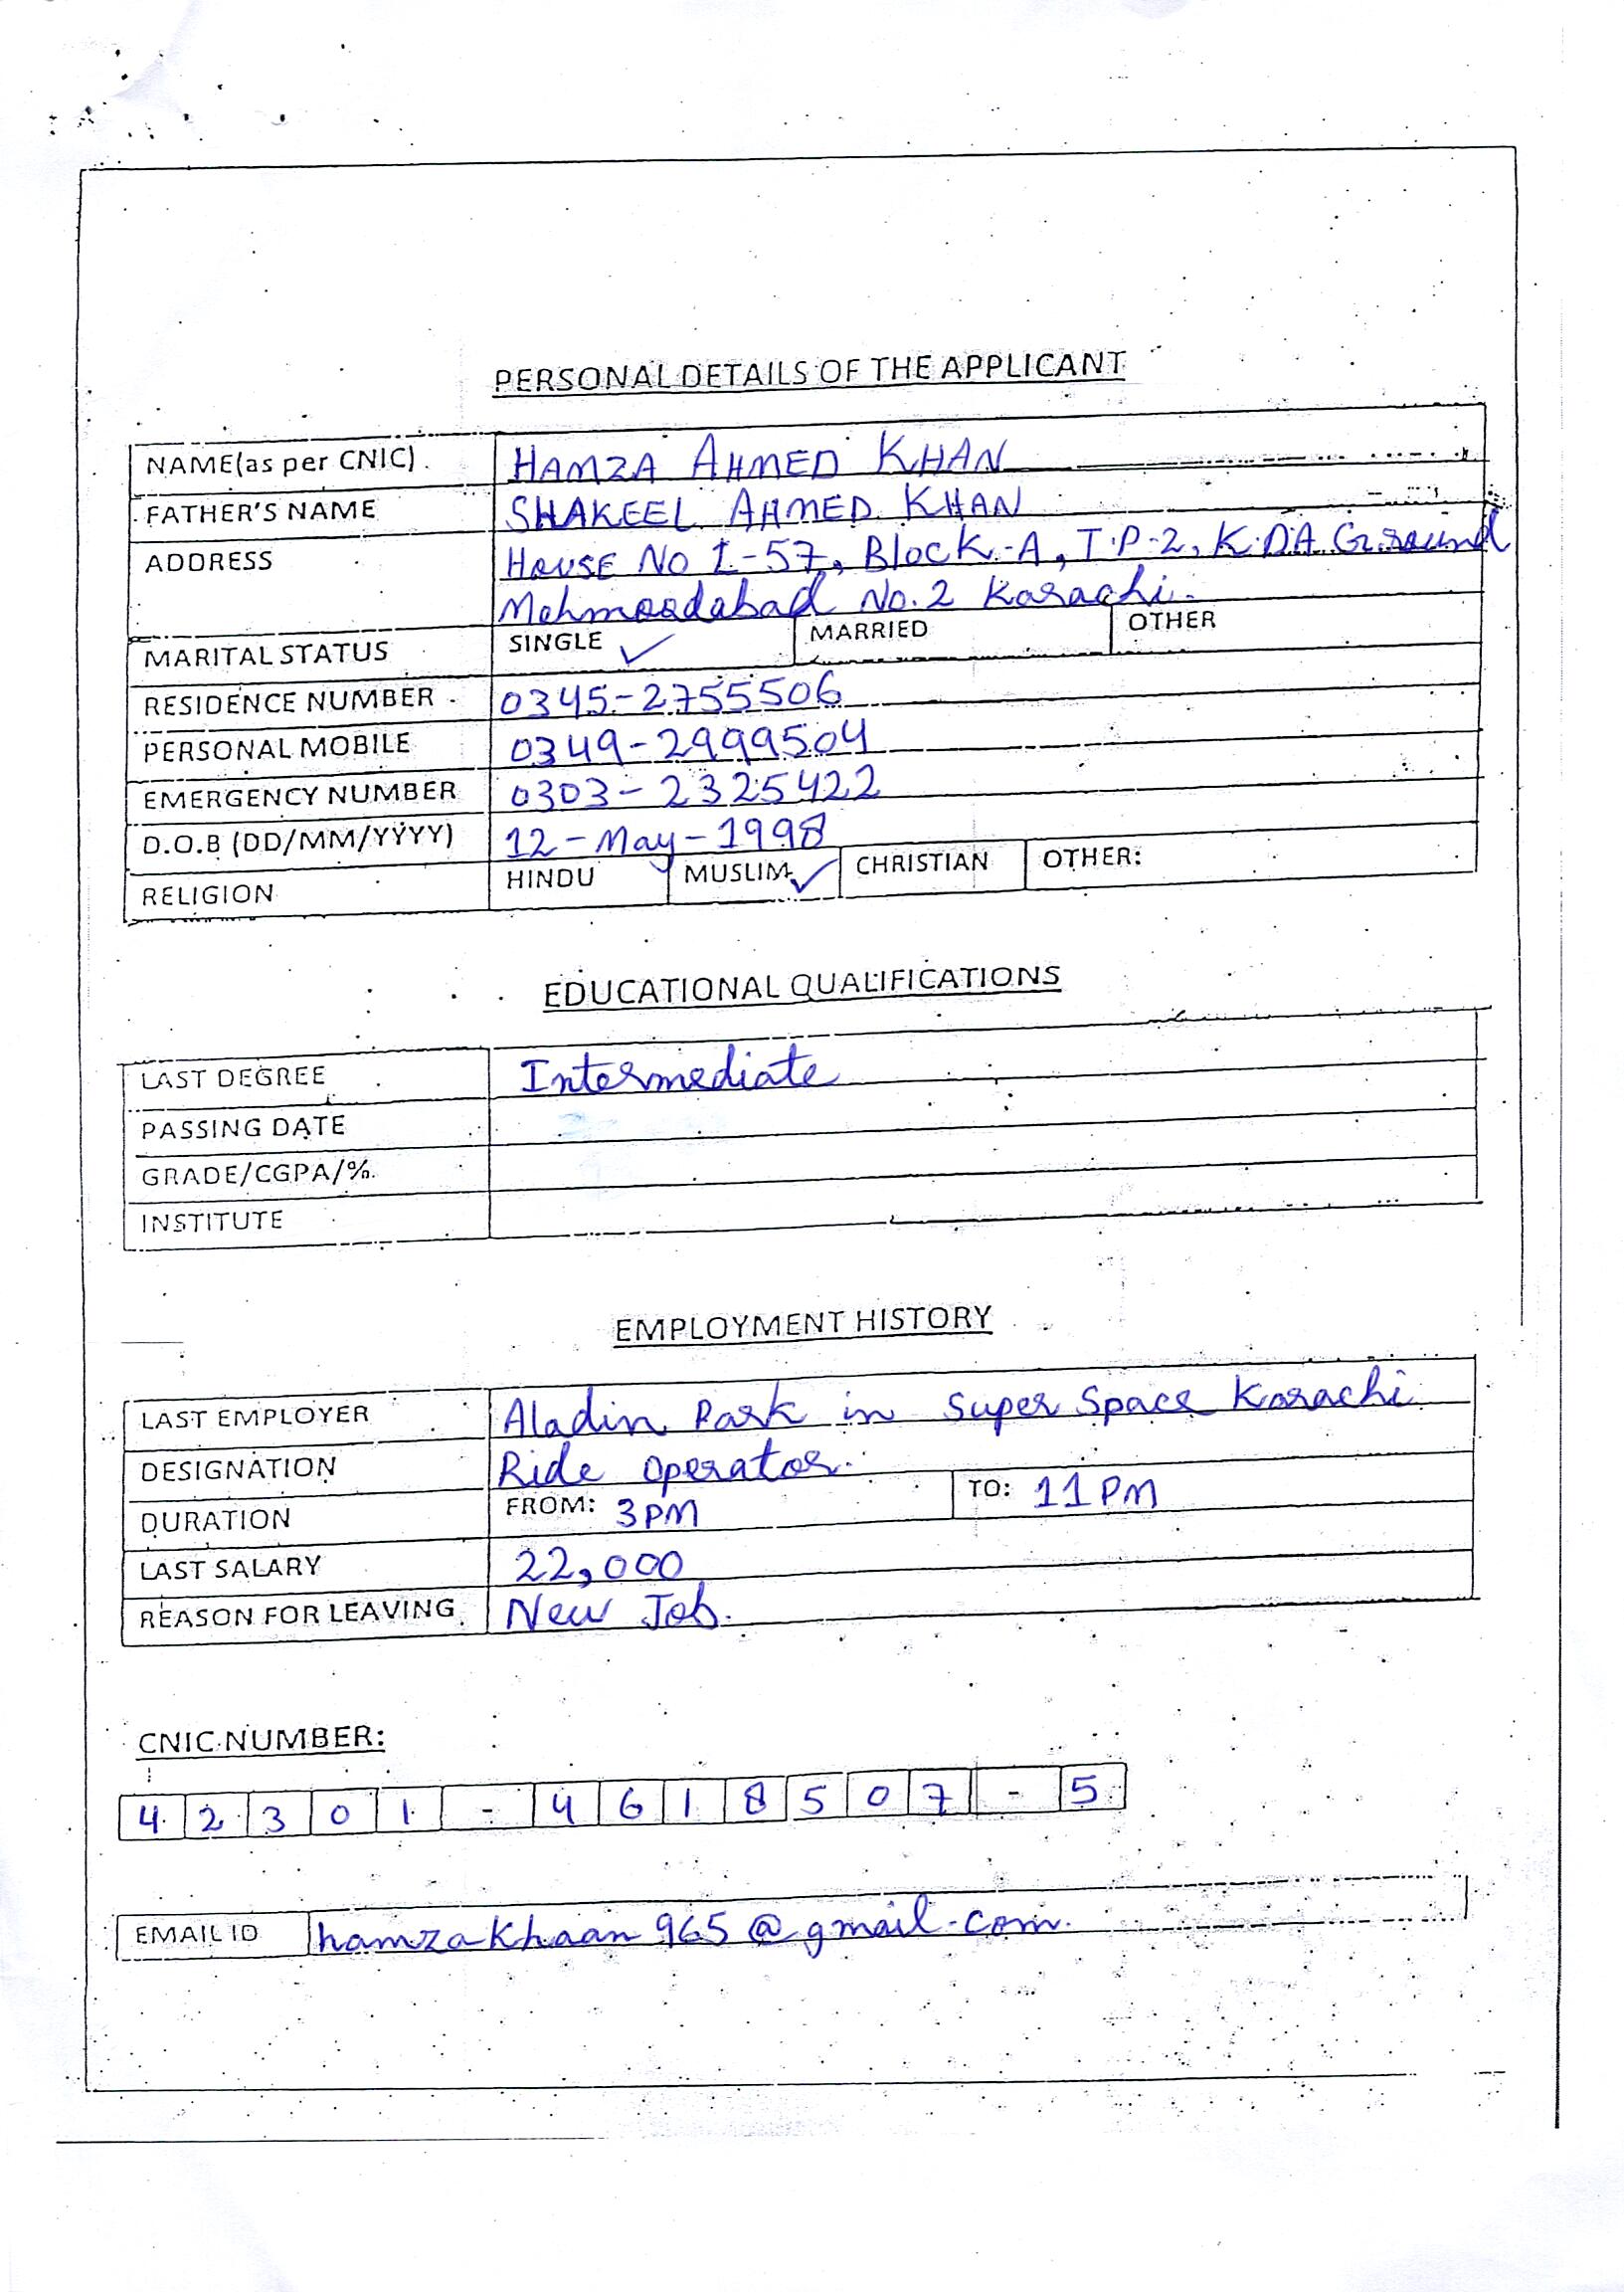 PERSONAL DETAILS OF THE APPLICANT
NAME(as per CNIC) HAMZA AHMED KHAN
FATHER'S NAME SHAKEEL AHMED KHAN
ADDRESS House No I-57, Block-A, T.P-2, K.DA Ground
Mehmoodabad No.2 Karachi.
MARITAL STATUS SINGLE ✓ MARRIED OTHER
RESIDENCE NUMBER 0345-2755506
PERSONAL MOBILE 0349-2999504
EMERGENCY NUMBER 0303-2325422
D.O.B (DD/MM/YYYY) 12-May-1998
RELIGION HINDU MUSLIM ✓ CHRISTIAN OTHER:
EDUCATIONAL QUALIFICATIONS
LAST DEGREE Intermediate
PASSING DATE
GRADE/CGPA/%
INSTITUTE
EMPLOYMENT HISTORY
LAST EMPLOYER Aladin Park in Super Space Karachi
DESIGNATION Ride Operator.
DURATION FROM: 3PM TO: 11PM
LAST SALARY 22,000
REASON FOR LEAVING New Job.
CNIC NUMBER:
42301-4618507-5
EMAIL ID hamzakhaan965@gmail.com